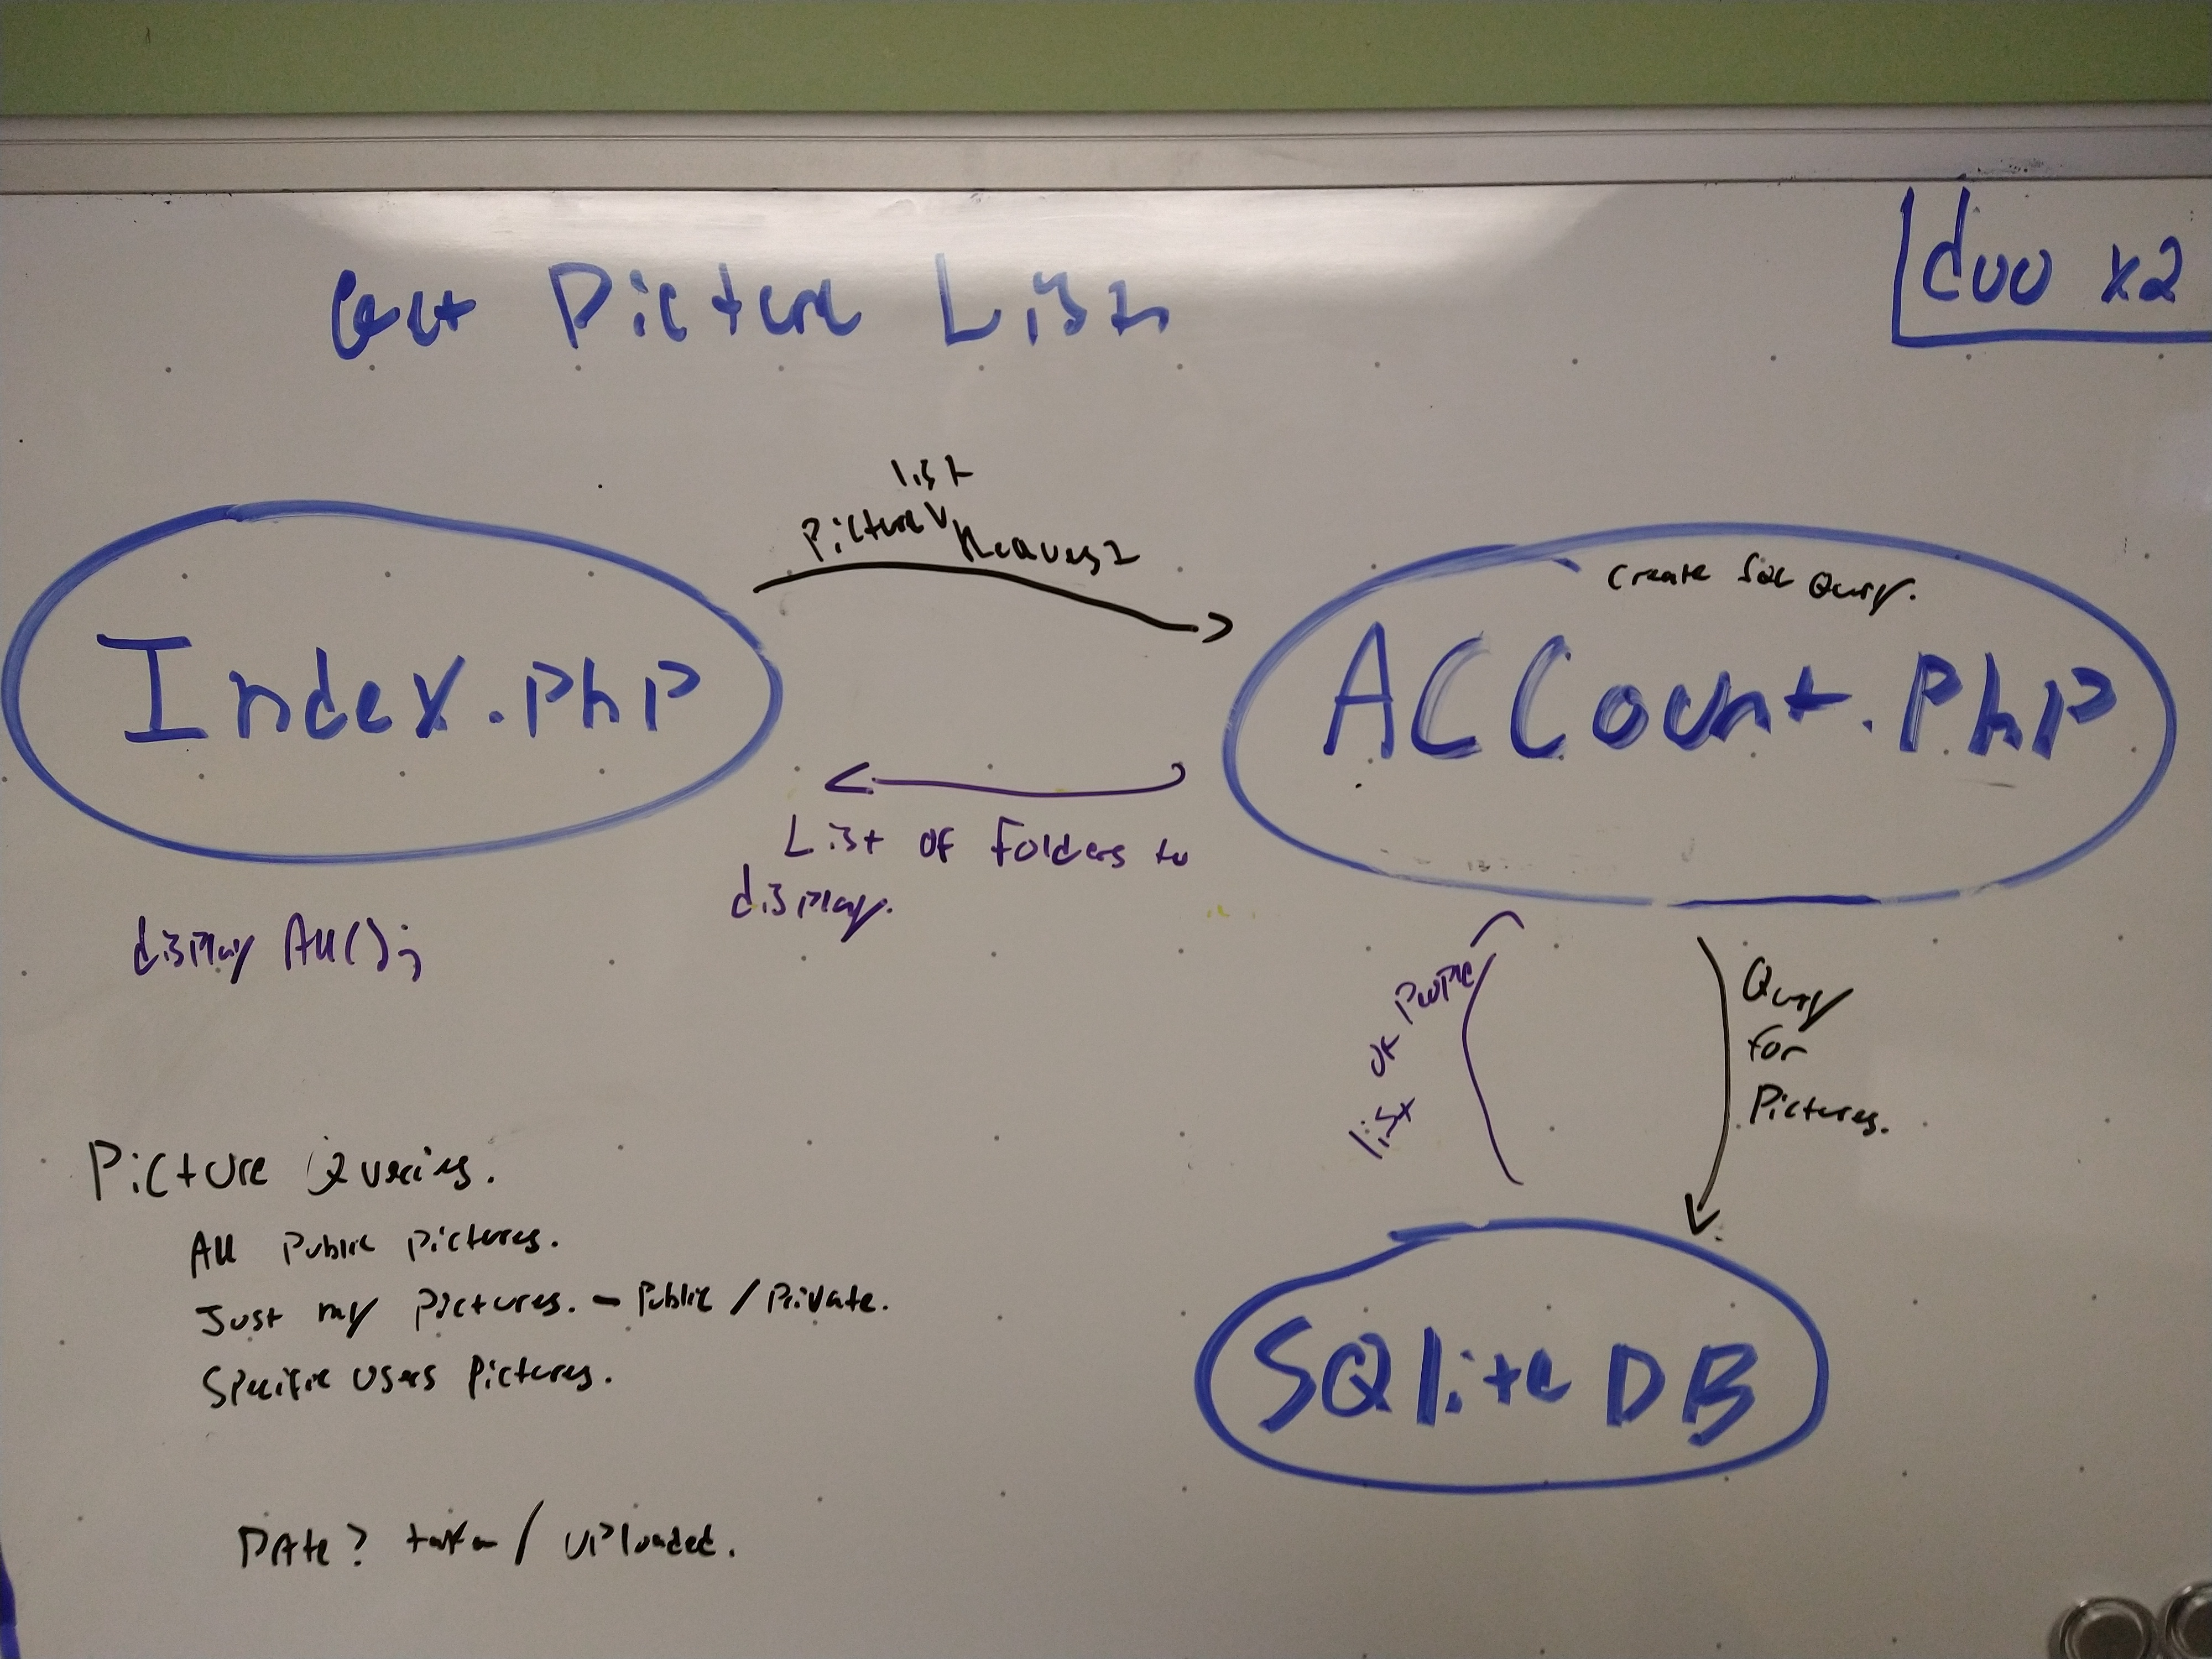 Get Picture List
duo x2
list
Picture Request
Create SQL Query.
Index.PhP
ACCount.PhP
List of Folders to
display.
display All();
list of People
Query
for
Pictures.
Picture Queries.
All Public Pictures.
Just my Pictures. - Public / Private.
Specific Users Pictures.
SQlite DB
DAte? taken / UPloaded.